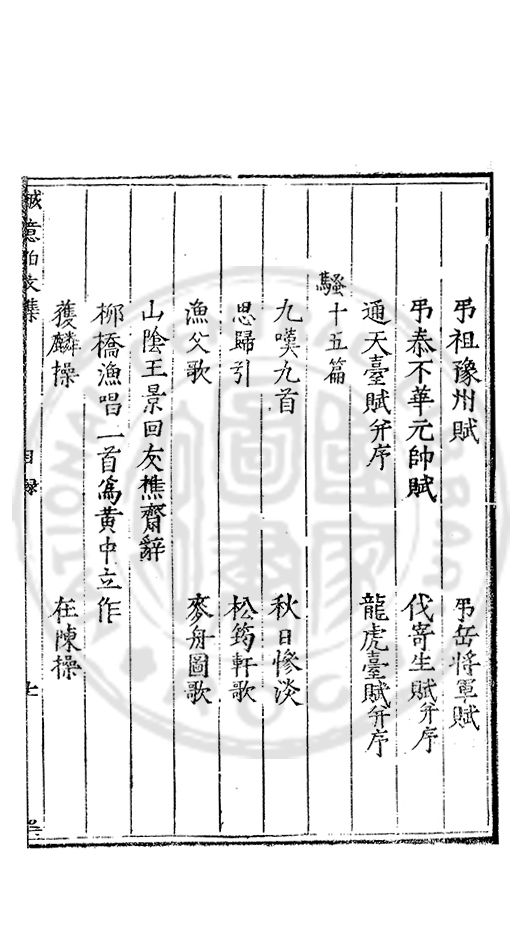 弔祖豫州賦 弔岳將軍賦
弔泰不華元帥賦 伐寄生賦并序
通天臺賦并序 龍虎臺賦并序
騷十五篇
九嘆九首 秋日慘淡
思歸引 松筠軒歌
漁父歌 麥舟圖歌
山陰王景回友樵齋辭
柳橋漁唱一首為黃中立作
獲麟操 在陳操
誠意伯文集 目錄